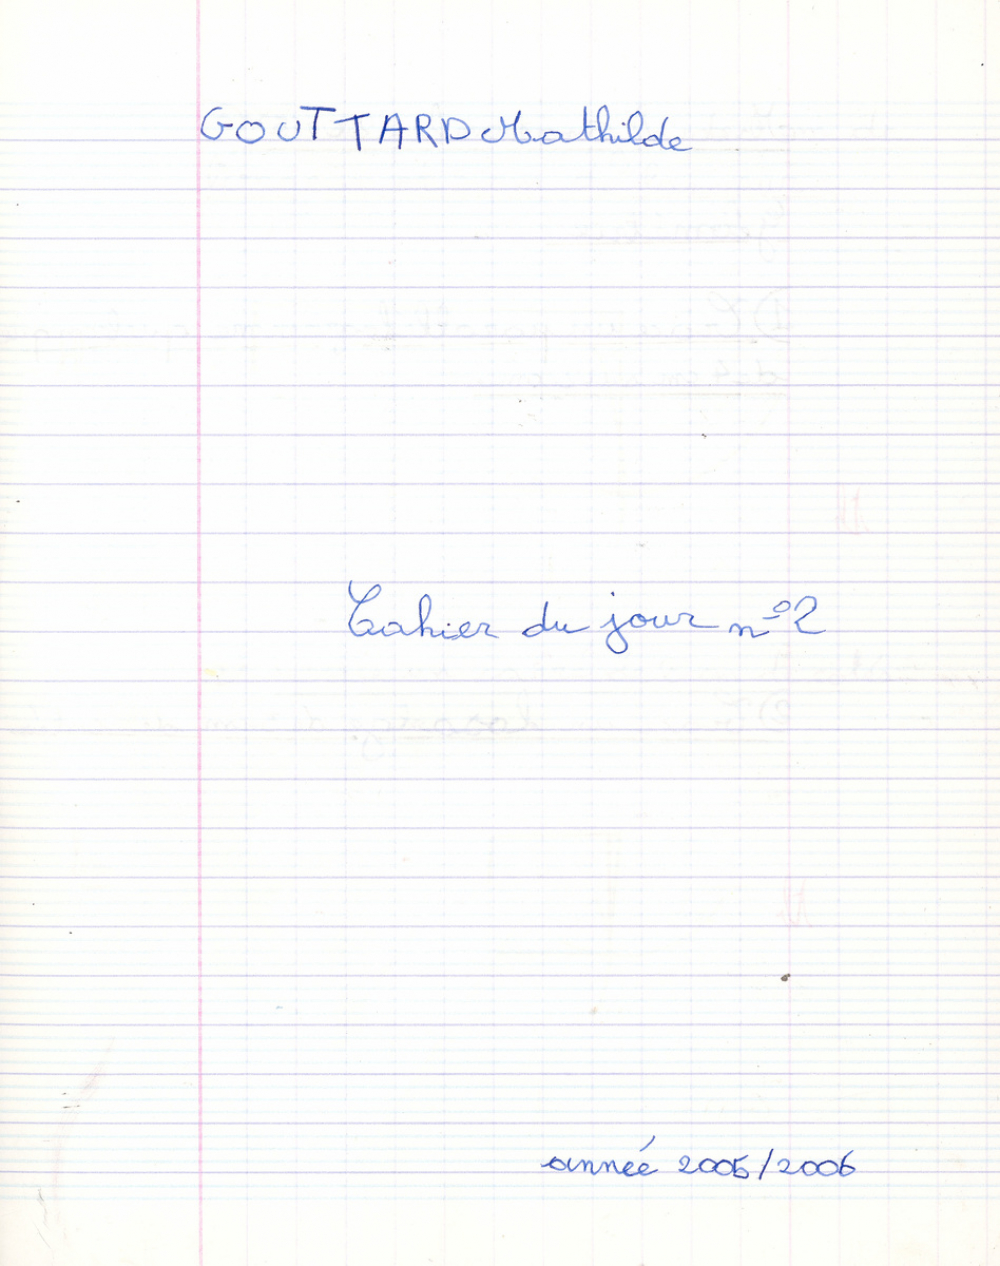 GOUTTARD Mathilde
Cahier du jour n°2
année 2005/2006